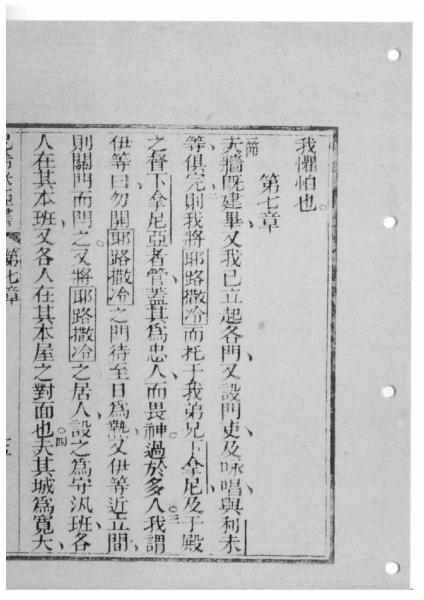 我懼怕也。
第七章
一節夫牆既建畢、又我已立起各門、又設門吏、及咏唱與利未
等俱完、二則我將耶路撒冷而托于我弟兄下拿尼、及于殿
之督下拿尼亞者管、蓋其為忠人、而畏神過於多人。三我謂
伊等曰、勿開耶路撒冷之門、待至日為熱、又伊等近立間、
則關門而閂之。又將耶路撒冷之居人、設之為守汛班、各
人在其本班、又各人在其本屋之對面也。四夫其城為寬大、
第七章